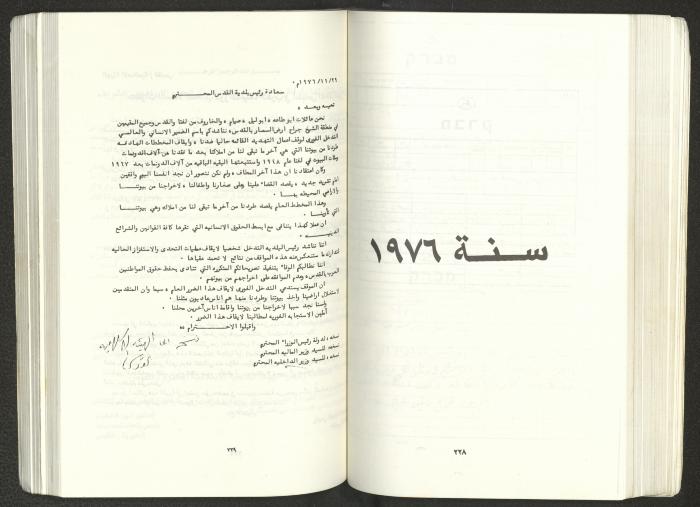 سنة ١٩٧٦
٢٢٨
٢٦/١١/١٩٧٦م ٠
سعادة رئيس بلدية القدس المحترم
تحيه وبعد ،
نحن عائلات ابو طاعه وابو ليل وصيام والخاروف من لفتا والقدس وجميع المقيمين
في منطقة الشيخ جراح ارض السمار بالقدس، نناشدكم باسم الضمير الانساني والعالمي
التدخل الفوري لوقف اعمال التهديد القائمه حاليا ضدنا، وايقاف المخططات الهادفه
طردنا من بيوتنا التي هي آخر ما تبقى لنا من املاكنا بعد ما فقدنا من آلاف الدونمات
ومئات البيوت في لفتا عام ١٩٤٨ واستتبعتها البقيه الباقيه من آلاف الدونمات بعد ١٩٦٧
وكان اعتقادنا ان هذا آخر المطاف، ولم نكن نتصور ان نجد انفسنا اليوم واقفين
امام تشريد جديد، بقصد القضاء علينا وعلى صغارنا واطفالنا، لاخراجنا من بيوتنا
والاراضي المحيطه بها ٠
وهذا المخطط العام يقصد طردنا من آخر ما تبقى لنا من املاك وهي بيوتنا
التي تأوينا ٠
ان عملا كهذا يتنافى مع ابسط الحقوق الانسانيه التي تقرها كافة القوانين والشرائع
الدينيه ٠
اننا نناشد رئيس البلديه التدخل شخصيا لايقاف عمليات التحدي والاستفزاز الحاليه
تداركا لما ستنعكس عنه هذه المواقف من نتائج لا تحمد عقباها ٠
اننا نطالبكم الوفاء بتنفيذ تصريحاتكم المتكرره التي تنادى بحفظ حقوق المواطنين
العرب بالقدس، وعدم الموافقه على اخراجهم من بيوتهم ٠
ان الموقف يستدعي التدخل الفوري لايقاف هذا الضرر العام، سيما وان المتقدمين
لاستغلال اراضينا واخذ بيوتنا وطردنا منها هم اناس عاديون مثلنا ٠
ولسنا نجد سببا لاخراجنا من بيوتنا واقامة اناس آخرين محلنا ٠
آملين الاستجابه الفوريه لمطالبنا لايقاف هذا الضرر ٠
واقبلوا الاحترام ،،
نسخه : لدولة رئيس الوزراء المحترم
نسخه : للسيد وزير الماليه المحترم
نسخه : للسيد وزير الداخليه المحترم
٢٢٩